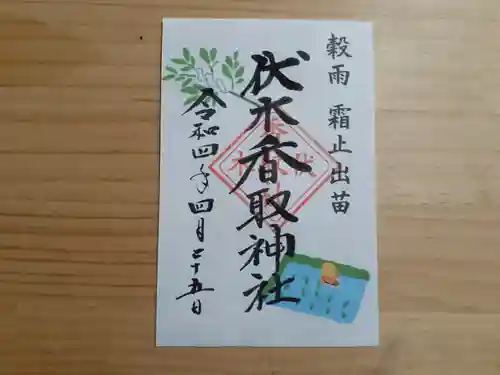 穀雨 霜止出苗
伏木香取神社
令和四年四月二十五日